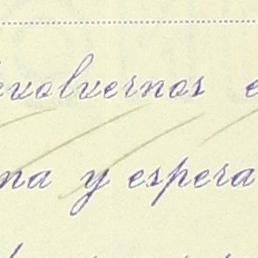 devolvernos e
ma y espera